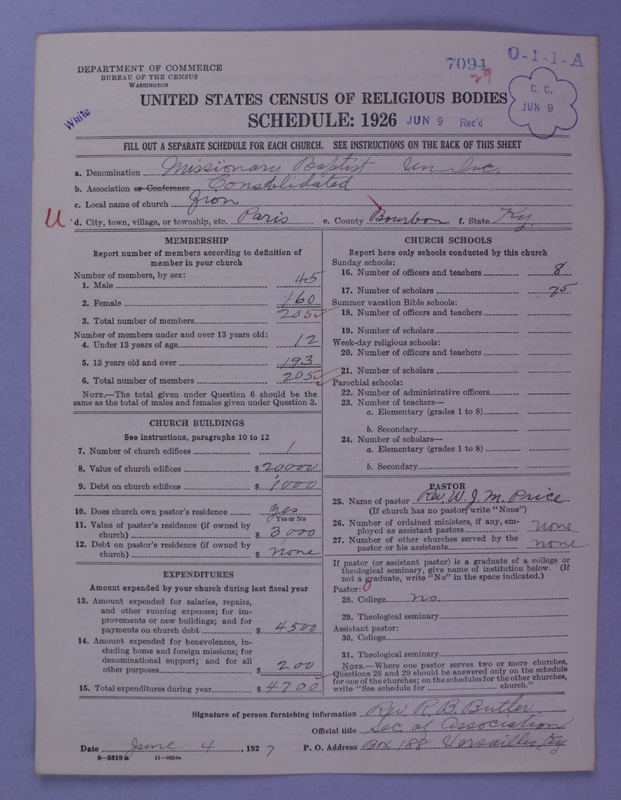 DEPARTMENT OF COMMERCE
BUREAU OF THE CENSUS
WASHINGTON
7094
29
O-1-1-A
C. C.
JUN 9
White
UNITED STATES CENSUS OF RELIGIOUS BODIES
SCHEDULE: 1926 JUN 9 Rec'd
FILL OUT A SEPARATE SCHEDULE FOR EACH CHURCH. SEE INSTRUCTIONS ON THE BACK OF THIS SHEET
a. Denomination Missionary Baptist Un. Inc.
b. Association or Conference Consolidated
c. Local name of church Zion
U d. City, town, village, or township, etc. Paris e. County Bourbon f. State Ky.
MEMBERSHIP
Report number of members according to definition of
member in your church
Number of members, by sex:
1. Male 45
2. Female 160
3. Total number of members 205
Number of members under and over 13 years old:
4. Under 13 years of age 12
5. 13 years old and over 193
6. Total number of members 205
NOTE.—The total given under Question 6 should be the
same as the total of males and females given under Question 3.
CHURCH BUILDINGS
See instructions, paragraphs 10 to 12
7. Number of church edifices 1
8. Value of church edifices $ 20000
9. Debt on church edifices $ 1000
10. Does church own pastor's residence yes
Yes or No
11. Value of pastor's residence (if owned by
church) $ 3000
12. Debt on pastor's residence (if owned by
church) $ none
EXPENDITURES
Amount expended by your church during last fiscal year
13. Amount expended for salaries, repairs,
and other running expenses; for im-
provements or new buildings; and for
payments on church debt $ 4500
14. Amount expended for benevolences, in-
cluding home and foreign missions; for
denominational support; and for all
other purposes $ 200
15. Total expenditures during year $ 4700
CHURCH SCHOOLS
Report here only schools conducted by this church
Sunday schools:
16. Number of officers and teachers 8
17. Number of scholars 75
Summer vacation Bible schools:
18. Number of officers and teachers
19. Number of scholars
Week-day religious schools:
20. Number of officers and teachers
21. Number of scholars
Parochial schools:
22. Number of administrative officers
23. Number of teachers—
a. Elementary (grades 1 to 8)
b. Secondary
24. Number of scholars—
a. Elementary (grades 1 to 8)
b. Secondary
PASTOR
25. Name of pastor Rev. W. J. M. Price
(If church has no pastor, write "None")
26. Number of ordained ministers, if any, em-
ployed as assistant pastors none
27. Number of other churches served by the
pastor or his assistants none
If pastor (or assistant pastor) is a graduate of a college or
theological seminary, give name of institution below. (If
not a graduate, write "No" in the space indicated.)
Pastor:
28. College no.
29. Theological seminary
Assistant pastor:
30. College
31. Theological seminary
NOTE.—Where one pastor serves two or more churches,
Questions 28 and 29 should be answered only on the schedule
for one of the churches; on the schedules for the other churches,
write "See schedule for church."
Signature of person furnishing information Rev. R. B. Butler
Official title Sec. of Association
Date June 4, 1927 P. O. Address Box 188 Versailles, Ky
8—5519 a 11—9054a